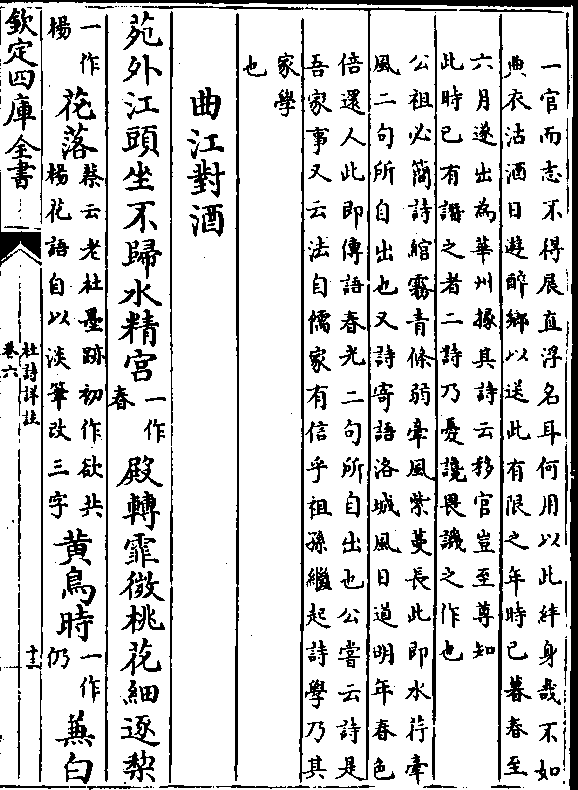 一官而志不得展直浮名耳何用以此絆身哉不如
典衣沽酒日遊醉鄉以送此有限之年時已暮春至
六月遂出為華州掾其詩云移官豈至尊知
此時已有譖之者二詩乃憂讒畏譏之作也
公祖必簡詩綰霧青條弱牽風紫蔓長此即水荇牽
風二句所自出也又詩寄語洛城風日道明年春色
倍還人此即傳語春光二句所自出也公嘗云詩是
吾家事又云法自儒家有信乎祖孫繼起詩學乃其
家學
也
曲江對酒
苑外江頭坐不歸水精宮一作
春殿轉霏微桃花細逐梨
一作
楊花落蔡云老杜墨跡初作欲共
楊花語自以淡筆改三字黃鳥時一作
仍兼白
欽定四庫全書
杜詩詳註
卷六
十三